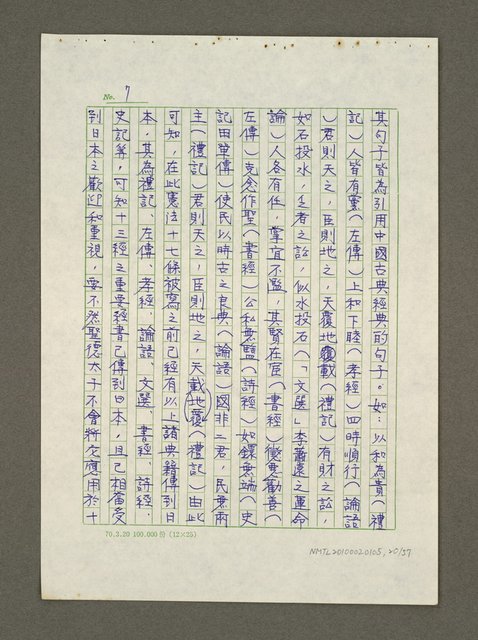 No. 7
其句子皆為引用中國古典經典的句子。如：以和為貴（禮
記）人皆有黨（左傳）上和下睦（孝經）四時順行（論語
）君則天之，臣則地之，天覆地載（禮記）有財之訟，
如石投水，乏者之訟，似水投石（「文選」李蕭遠之運命
論）人各有任，掌宜不濫，其賢在官（書經）懲惡勸善（
左傳）克念作聖（書經）公私無盬（詩經）如鐶無端（史
記田單傳）使民以時古之良典（論語）國非二君，民無兩
主（禮記）君則天之，臣則地之，天覆地載（禮記）由此
可知，在此憲法十七條被寫之前已經有以上諸典籍傳到日
本，其為禮記、左傳、孝經、論語、文選、書經、詩經、
史記等，可知十三經之重要經書已傳到日本，且已相當受
到日本之歡迎和重視，要不然聖德太子不會將它應用於十
70.3.20 100.000份(12×25)
NMTL20100020105, 20/37